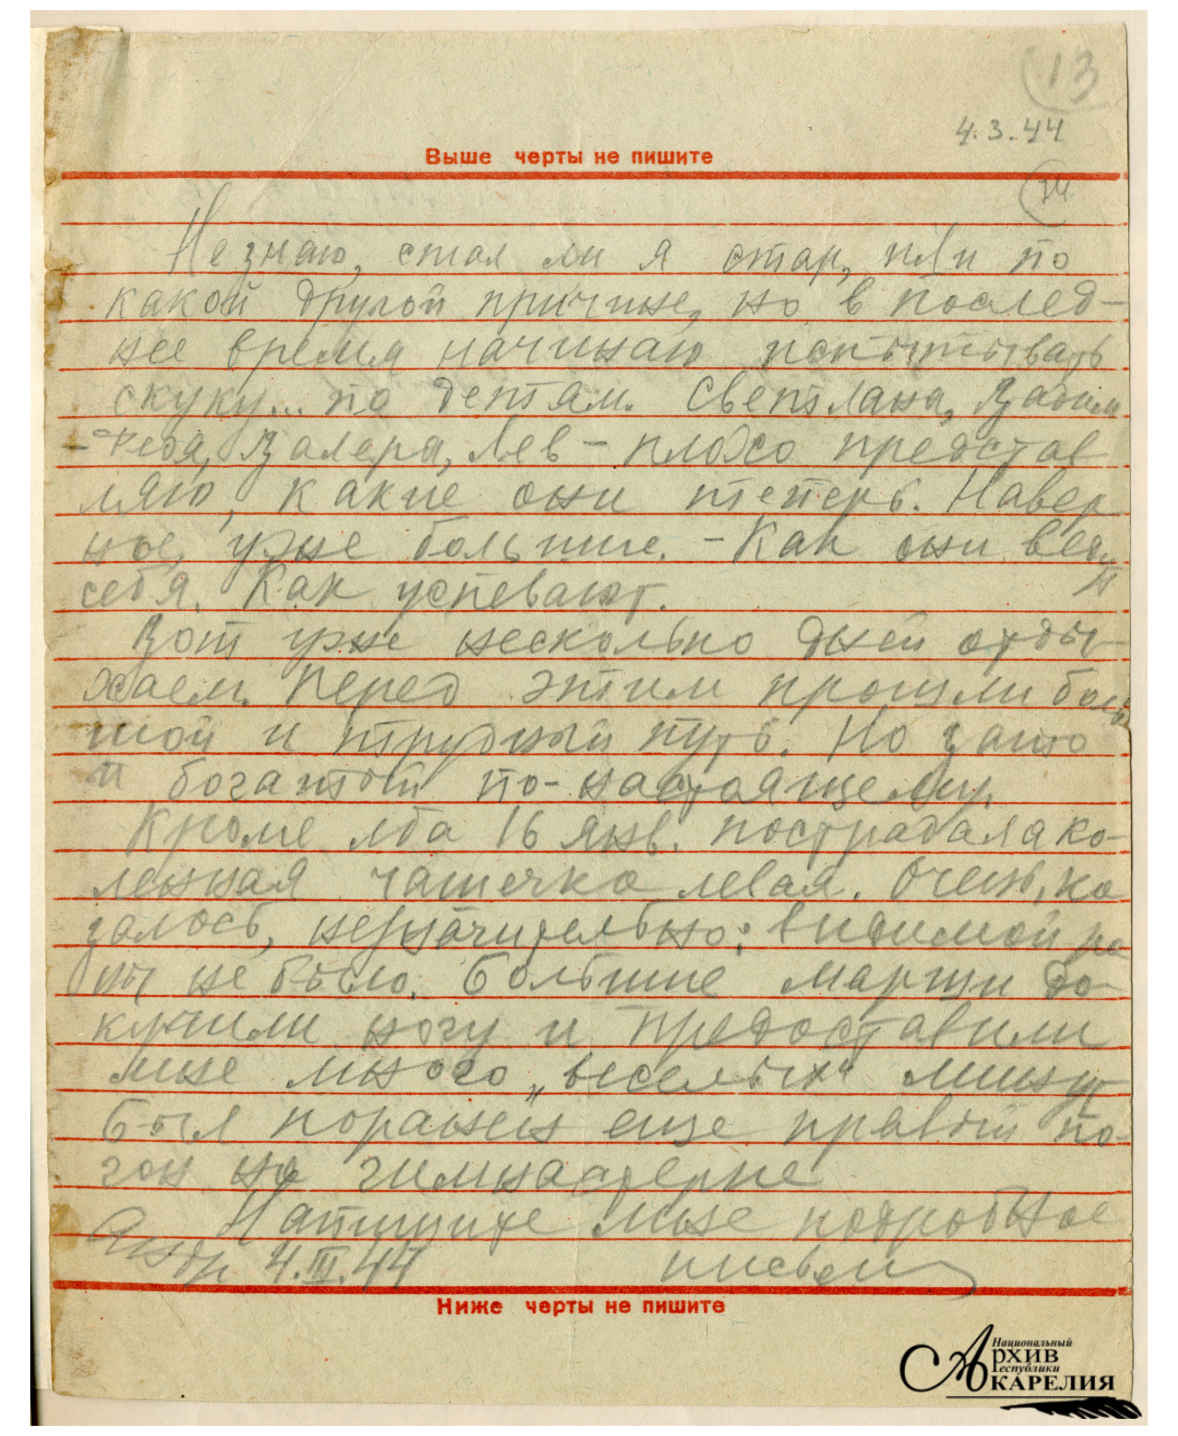 13
4.3.44
Выше черты не пишите
14
Не знаю, стал ли я стар, или по
какой другой причине, но в послед-
нее время начинаю испытывать
скуку... по детям. Светлана, Вадим
Валера, Лев - плохо представ
ляю, какие они теперь. Навер
ное, уже большие. - Как они ведут
себя. Как успевают.
Вот уже несколько дней отды-
хаем. Перед этим прошли боль
шой и трудный путь. Но зато
и богатый по-настоящему.
Кроме лба 16 янв. пострадала ко-
ленная чашечка левая. Очень, ка
залось, незначительно: видимой ра
ны не было. Большие марши до-
кучили ногу и предоставили
мне много „веселых“ минут
Был поражен еще правый по-
гон на гимнастерке
Напишите мне подробное
Андр 4.III.44 письмо
Ниже черты не пишите
Национальный
Архив
Республики
Карелия